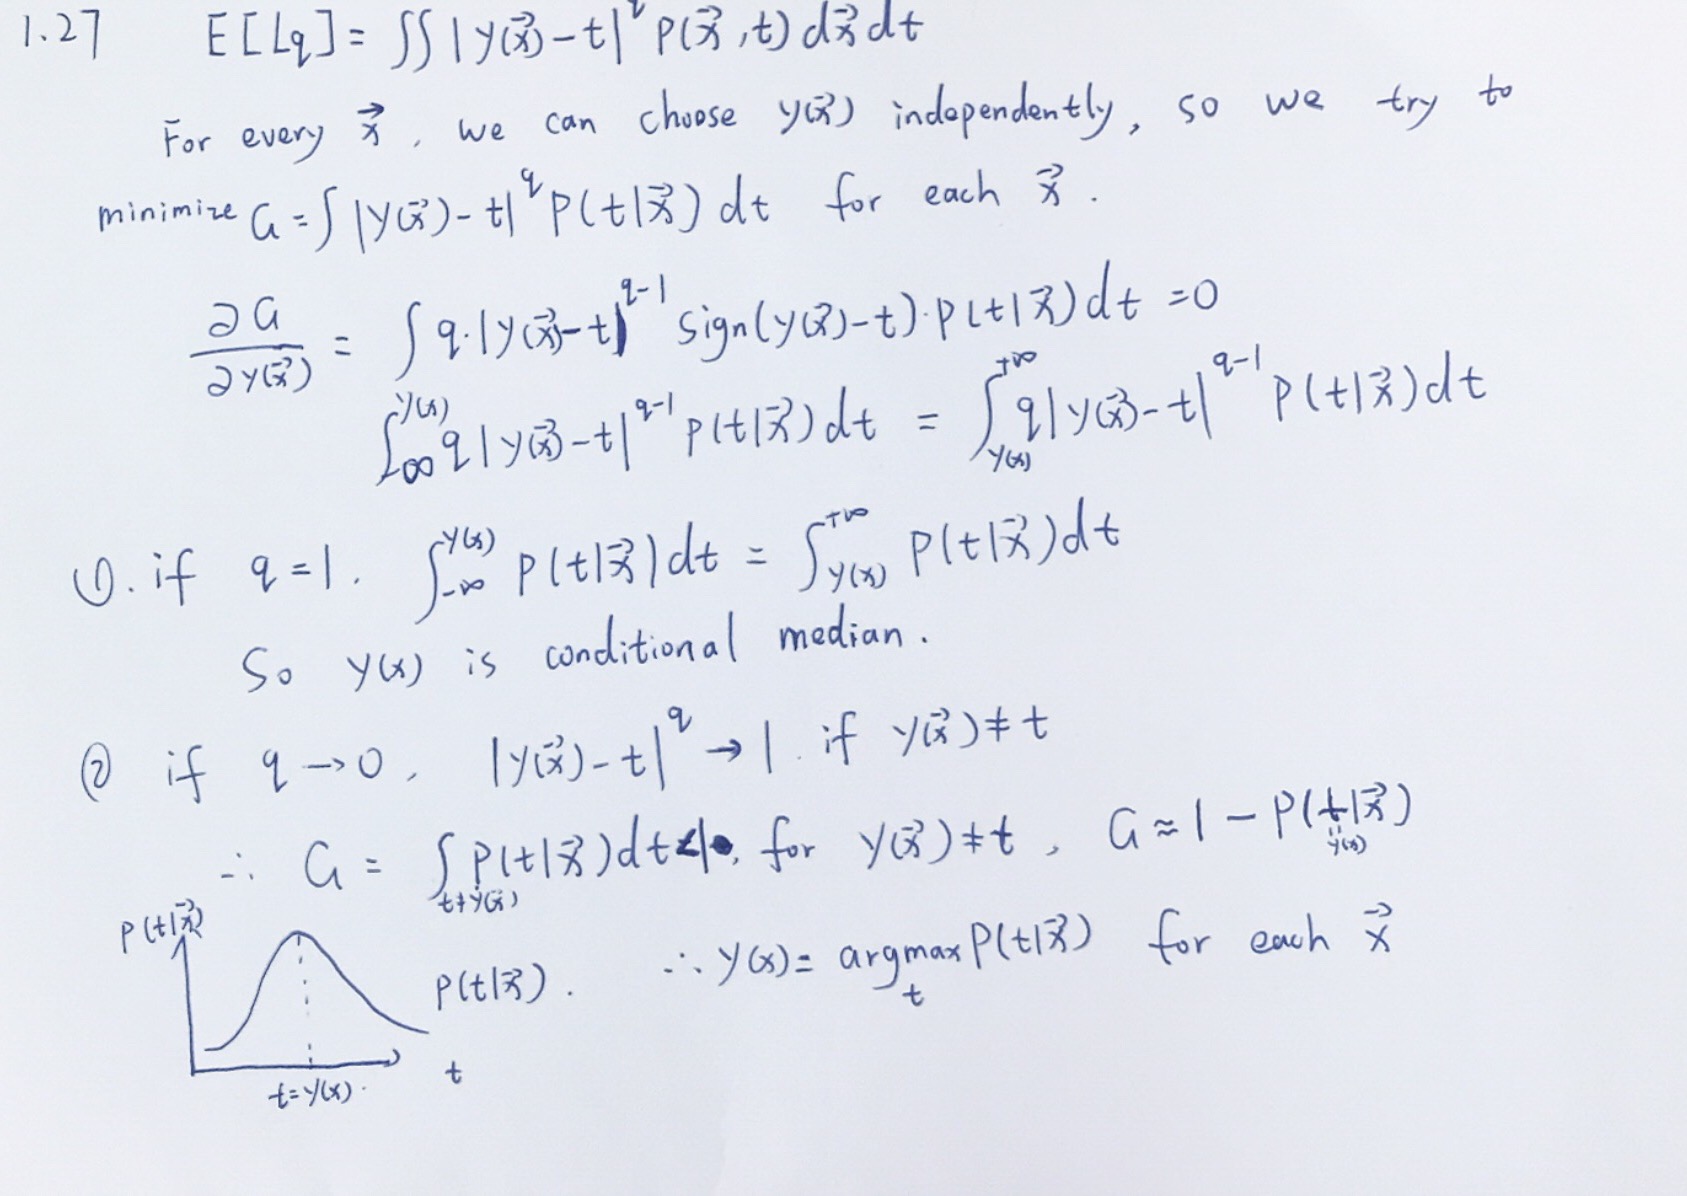 1.27 E[Lq] = ∫∫ |y(x⃗)-t|^q P(x⃗,t) dx⃗ dt
For every x⃗, we can choose y(x⃗) independently, so we try to
minimize G = ∫ |y(x⃗)-t|^q P(t|x⃗) dt for each x⃗.
∂G/∂y(x⃗) = ∫ q·|y(x⃗)-t|^{q-1} sign(y(x⃗)-t)·P(t|x⃗) dt = 0
∫_{-∞}^{y(x)} q|y(x⃗)-t|^{q-1} P(t|x⃗) dt = ∫_{y(x)}^{+∞} q|y(x⃗)-t|^{q-1} P(t|x⃗) dt
①. if q=1. ∫_{-∞}^{y(x)} P(t|x⃗) dt = ∫_{y(x)}^{+∞} P(t|x⃗) dt
So y(x) is conditional median.
② if q→0, |y(x⃗)-t|^q → 1. if y(x⃗)≠t
∴ G = ∫_{t≠y(x⃗)} P(t|x⃗) dt <1, for y(x⃗)≠t, G≈1-P(t|x⃗)
=y(x)
P(t|x⃗)
P(t|x⃗). ∴ y(x) = argmax_t P(t|x⃗) for each x⃗
t
t=y(x).